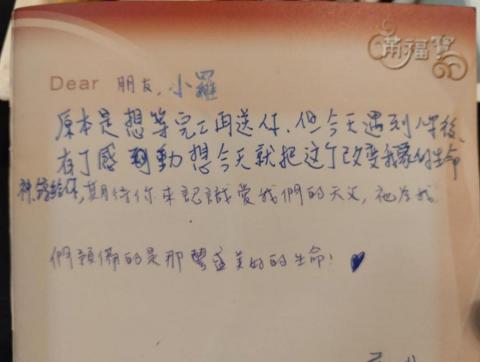 滿福寶
Dear 朋友, 小羅
原本是想等完工再送你, 但今天遇到你後,
有了感動想今天就把這个改變我家的生命
祝福給你, 期待你來認識愛我們的天父, 祂為我
們預備的是那豐盛美好的生命!